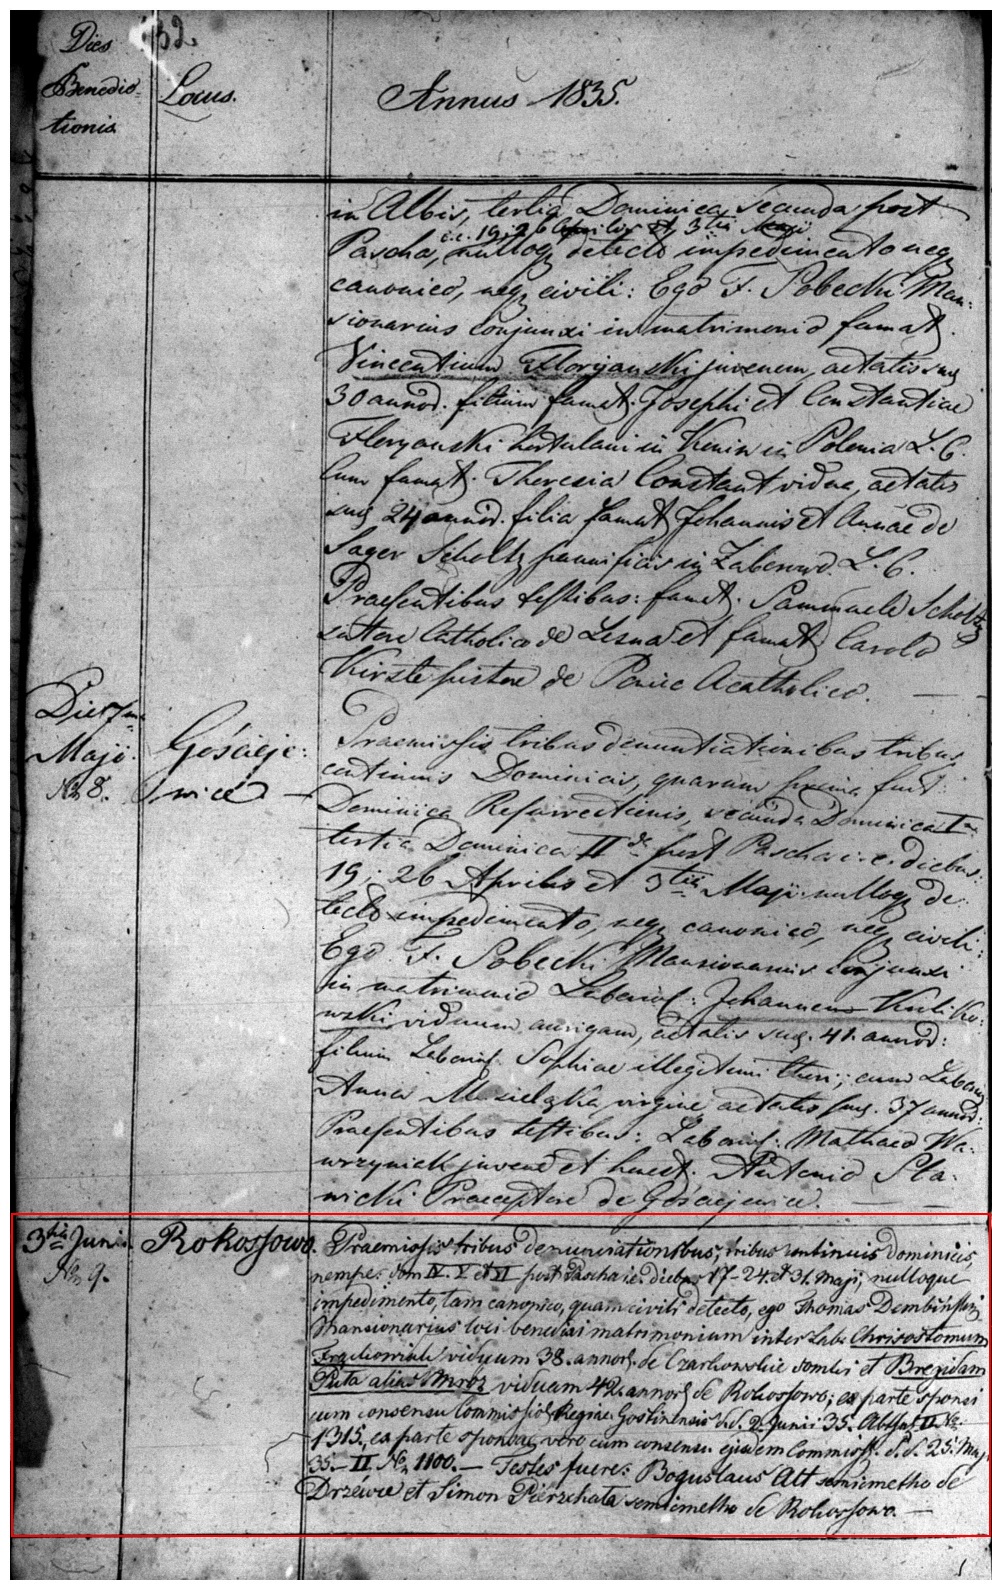 Dies
Benedic-
tionis
32.
Locus.
Annus 1835.
in Albis, tertia Dominica secunda post
i.e. 19; 26 Aprilis et 3tia Maji
Pascha, nulloq detecto impedimento neq
canonico, neq civili: Ego F. Sobecki Man-
sionarius conjunxi in matrimonio famat.
Vincentium Floryanski juvenem, aetatis suae
30 annor. filium famat. Josephi et Constantiae
Floryanski hortulani in Konin in Polonia L. C.
Cum famat. Theresia Constant vidua, aetatis
suae 24 annor. filia famat Johannis et Annae de
Sager Scholtz pannificis in Zaborow. L. C.
Praesentibus testibus: famat. Sammuele Scholtz
sutore Catholico de Lesna et famat Carolo
Kirste pistore de Poniec Acatholico.
Die 7ma
Maji.
No 8.
Gościeje-
wice
Praemissis tribus denuntiationibus tribus
continuis Dominicis, quarum prima fuit:
Dominica Resurrectionis, secunda Dominica I
tertia Dominica II da post Pascha i.e. diebus:
19; 26 Aprilis et 3tia Maji nulloq de-
tecto impedimento, neq canonico, neq civili:
Ego F. Sobecki Mansionarius conjunxi
in matrimonio Laborios: Johannem Kuliko-
wski viduum aurigam, aetatis suae. 41. annor:
filium Laborios Sophiae illegitimi thori; cum Laborios
Anna virgine aetatis suae. 37 annor:
Praesentibus testibus: Laborios: Mathaeo Wa-
wrzyniak juvene et honest. Antonio Sla-
wicki Praeceptore de Gościejewice.
3tia Junii.
No 9.
Rokossowo.
Praemissis tribus denunciationibus, tribus continuis Dominicis,
nempe: Dom IV. V et VI post Pascha i.e. diebus 17-24. et 31. Maji, nulloque
impedimento, tam canonico, quam civili detecto, ego Thomas Dembiński
Mansionarius loci benedixi matrimonium inter Lab: Chrisostomum
Frąckowiak viduum 38. annor. de Czarkowskie et Bregidam
Puta alias Mroz viduam 42. annor. de Rokossowo; ex parte sponsi
cum consensu Commissiol Regiae Gostinensis d.d. 2. Junii 35. II No
1315, ex parte sponsae vero cum consensu ejusdem Commiss. d.d. 25. Maj.
35.- II. No 1100.- Testes fuere: Boguslaus Alt semicmetho de
Drzewce et Simon Pierzchała semicmetho de Rokossowo.